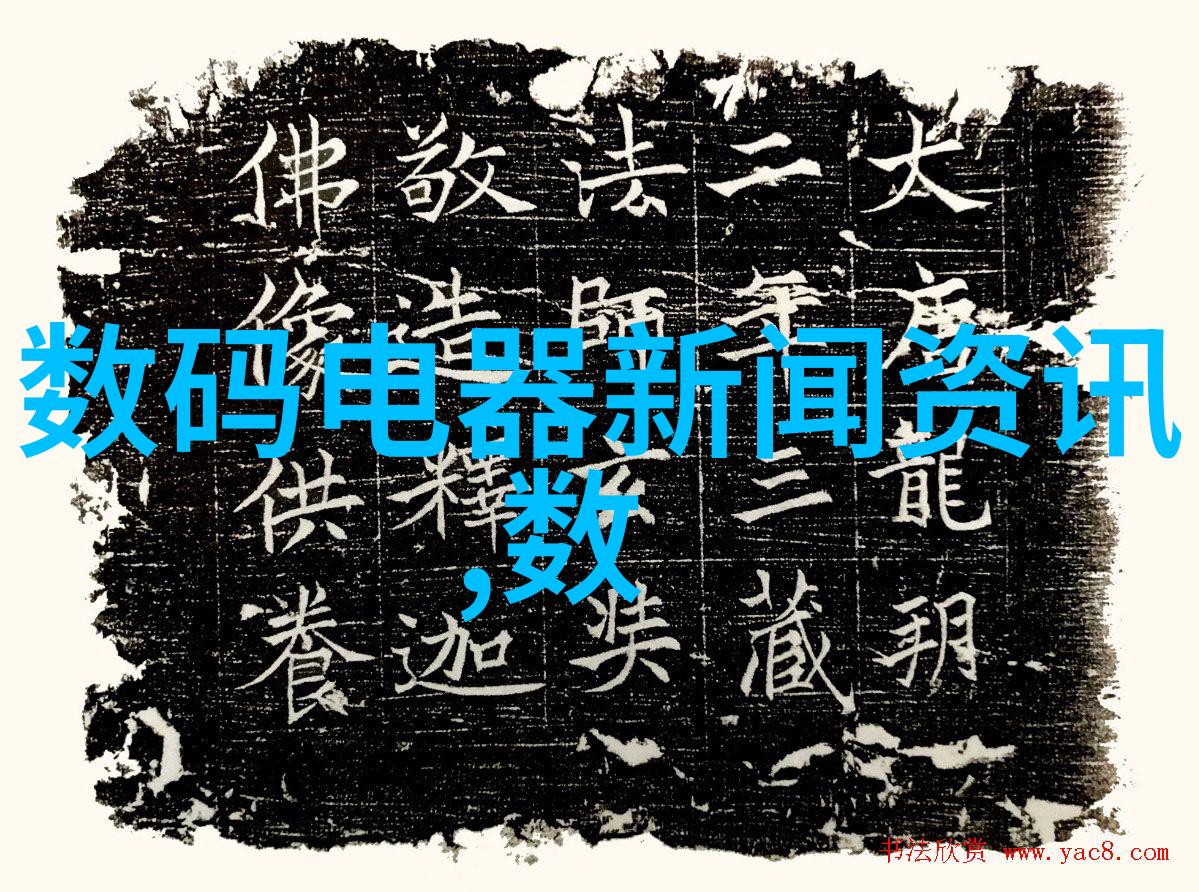 大唐龍朔
二年三藏
法師玄奘
敬造釋迦
佛像供養
数码电器新闻资讯
,数
书法欣赏 www.yac8.com